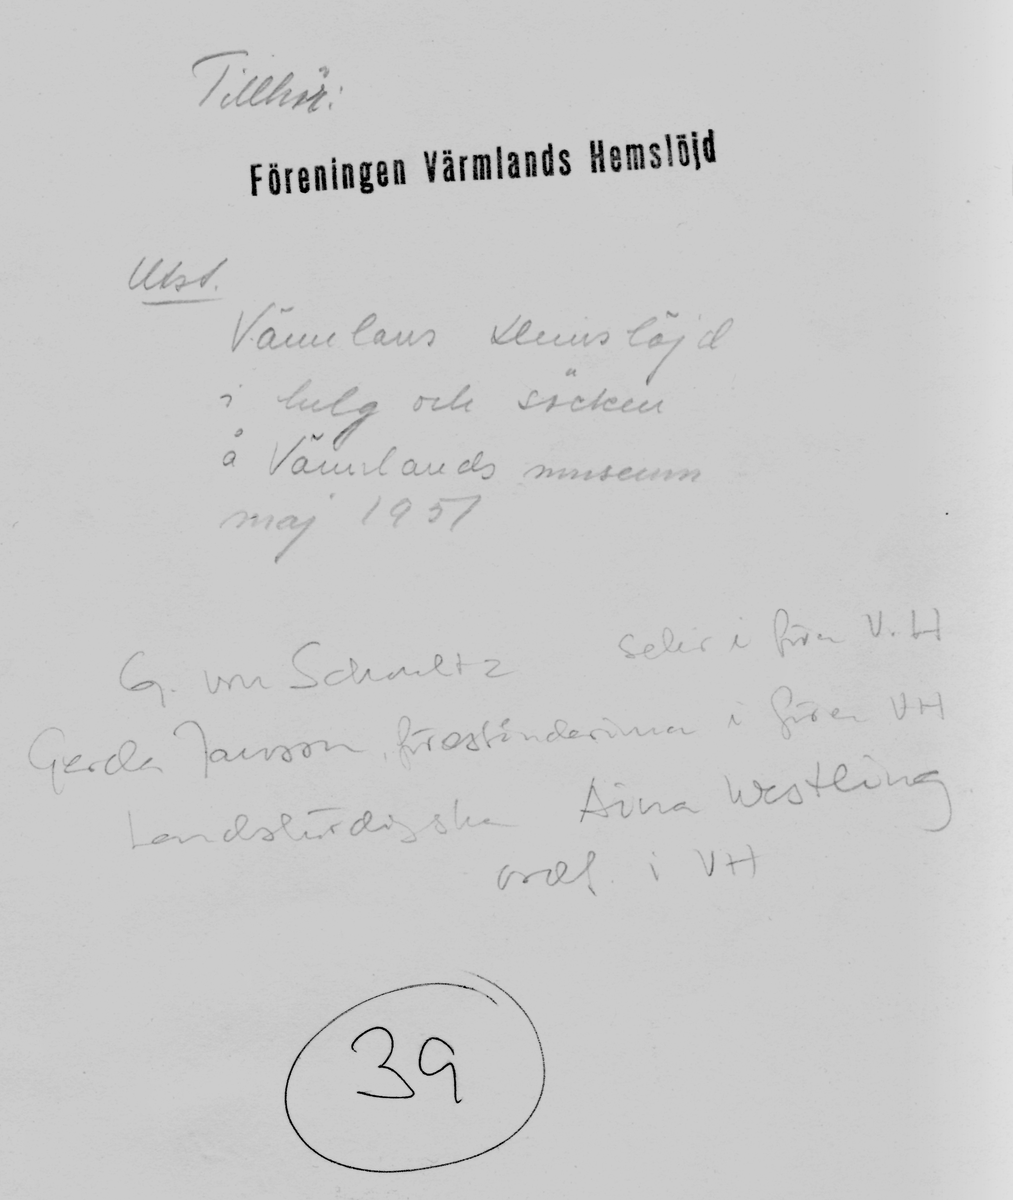 Tillhör:
Föreningen Värmlands Hemslöjd
Utst.
Värmlans Hemslöjd
i helg och söcken
å Värmlands museum
maj 1951
G. von Schoultz sekr i fören V.H
Gerda Jansson, föreståndarinna i fören VH
Landshövdingska Aina Westling
ordf. i VH
39